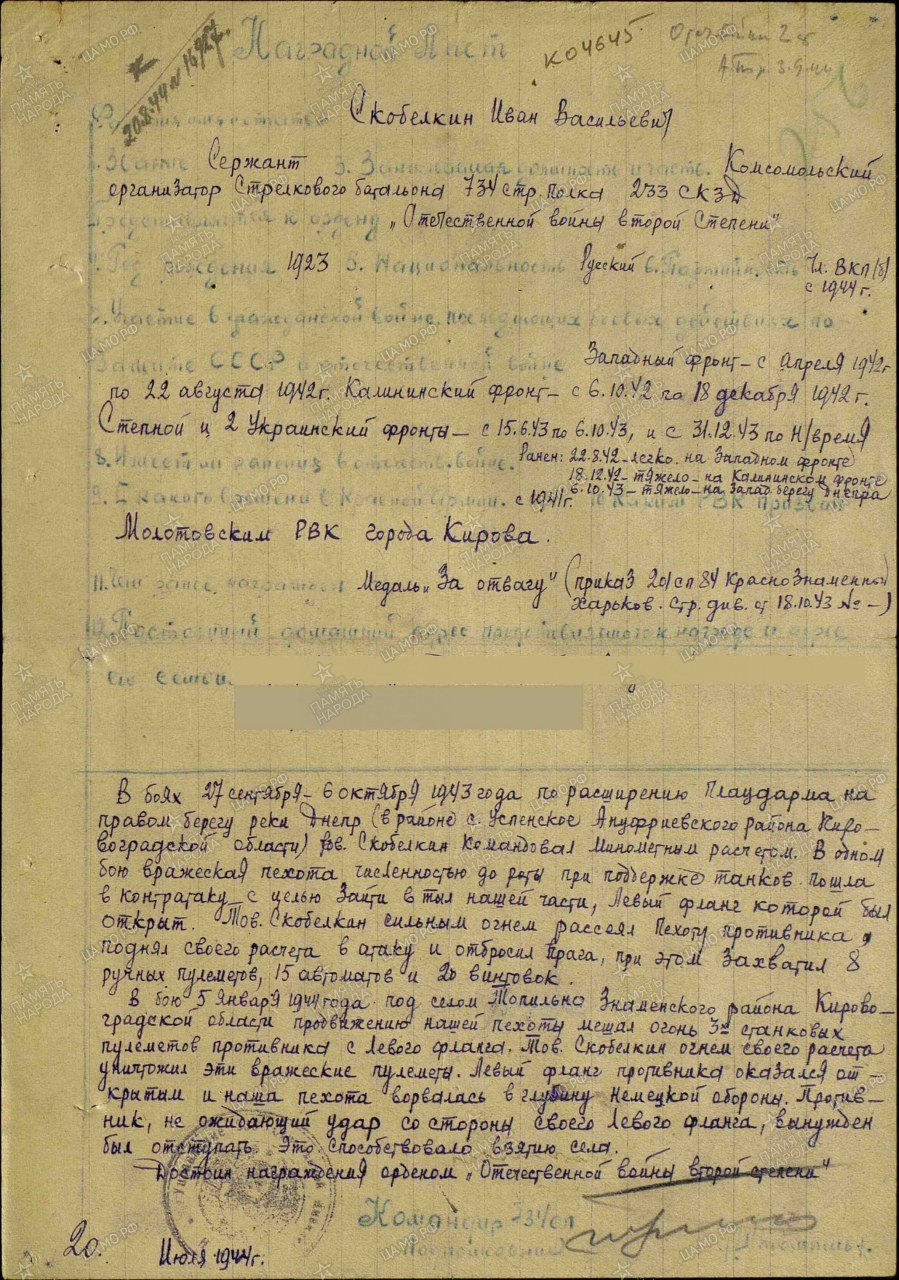 Наградной Лист
К04645
20.8.44
Скобелкин Иван Васильевич
Сержант 3. Занимаемая должность и часть. Комсомольский
организатор Стрелкового батальона 734 стр. полка 233 СКЗД
Представляется к ордену „Отечественной войны второй Степени"
4. Год рождения 1923 5. Национальность Русский 6. Партийность Чл. ВКП(б)
с 1944г.
7. Участие в гражданской войне, последующих боевых действиях по
защите СССР и отечественной войне Западный фронт – с апреля 1942г
по 22 августа 1942г. Калининский фронт – с 6.10.42 по 18 декабря 1942г.
Степной и 2 Украинский фронты – с 15.6.43 по 6.10.43, и с 31.12.43 по Н/время
8. Имеет ли ранения в отечеств. войне. Ранен: 22.8.42 – легко. на Западном фронте
18.12.42 – тяжело – на Калининском фронте
6.10.43 – тяжело – на Запад. берегу Днепра
9. С какого времени в Красной Армии. с 1941г. 10 Каким РВК призван
Молотовским РВК города Кирова.
11. Чем ранее награжден Медаль „За отвагу" (приказ 201 сп 84 Краснознаменной
Харьков. Стр. див. от 18.10.43 № –)
12. Постоянный домашний адрес представляемого к награде и адрес
его семьи.
В боях 27 сентября – 6 октября 1943 года по расширению Плацдарма на
правом берегу реки Днепр (в районе с. Успенское Ануфриевского района Киро–
воградской области) тов. Скобелкин командовал минометным расчетом. В одном
бою вражеская пехота численностью до роты при поддержке танков пошла
в контратаку с целью зайти в тыл нашей части, Левый фланг которой был
открыт. Тов. Скобелкин сильным огнем рассеял пехоту противника,
поднял своего расчета в атаку и отбросил врага, при этом захватил 8
ручных пулеметов, 15 автоматов и 20 винтовок.
В бою 5 января 1944 года под селом Топильно Знаменского района Кирово–
градской области продвижению нашей пехоты мешал огонь 3х станковых
пулеметов противника с левого фланга. Тов. Скобелкин огнем своего расчета
уничтожил эти вражеские пулеметы. Левый фланг противника оказался от–
крытым и наша пехота ворвалась в глубину немецкой обороны. Против–
ник, не ожидающий удар со стороны своего левого фланга, вынужден
был отступать. Это способствовало взятию села.
Достоин награждения орденом „Отечественной войны второй степени"
Командир 734 сп
20. Июля 1944г.
ПАМЯТЬ НАРОДА
ЦАМО.РФ